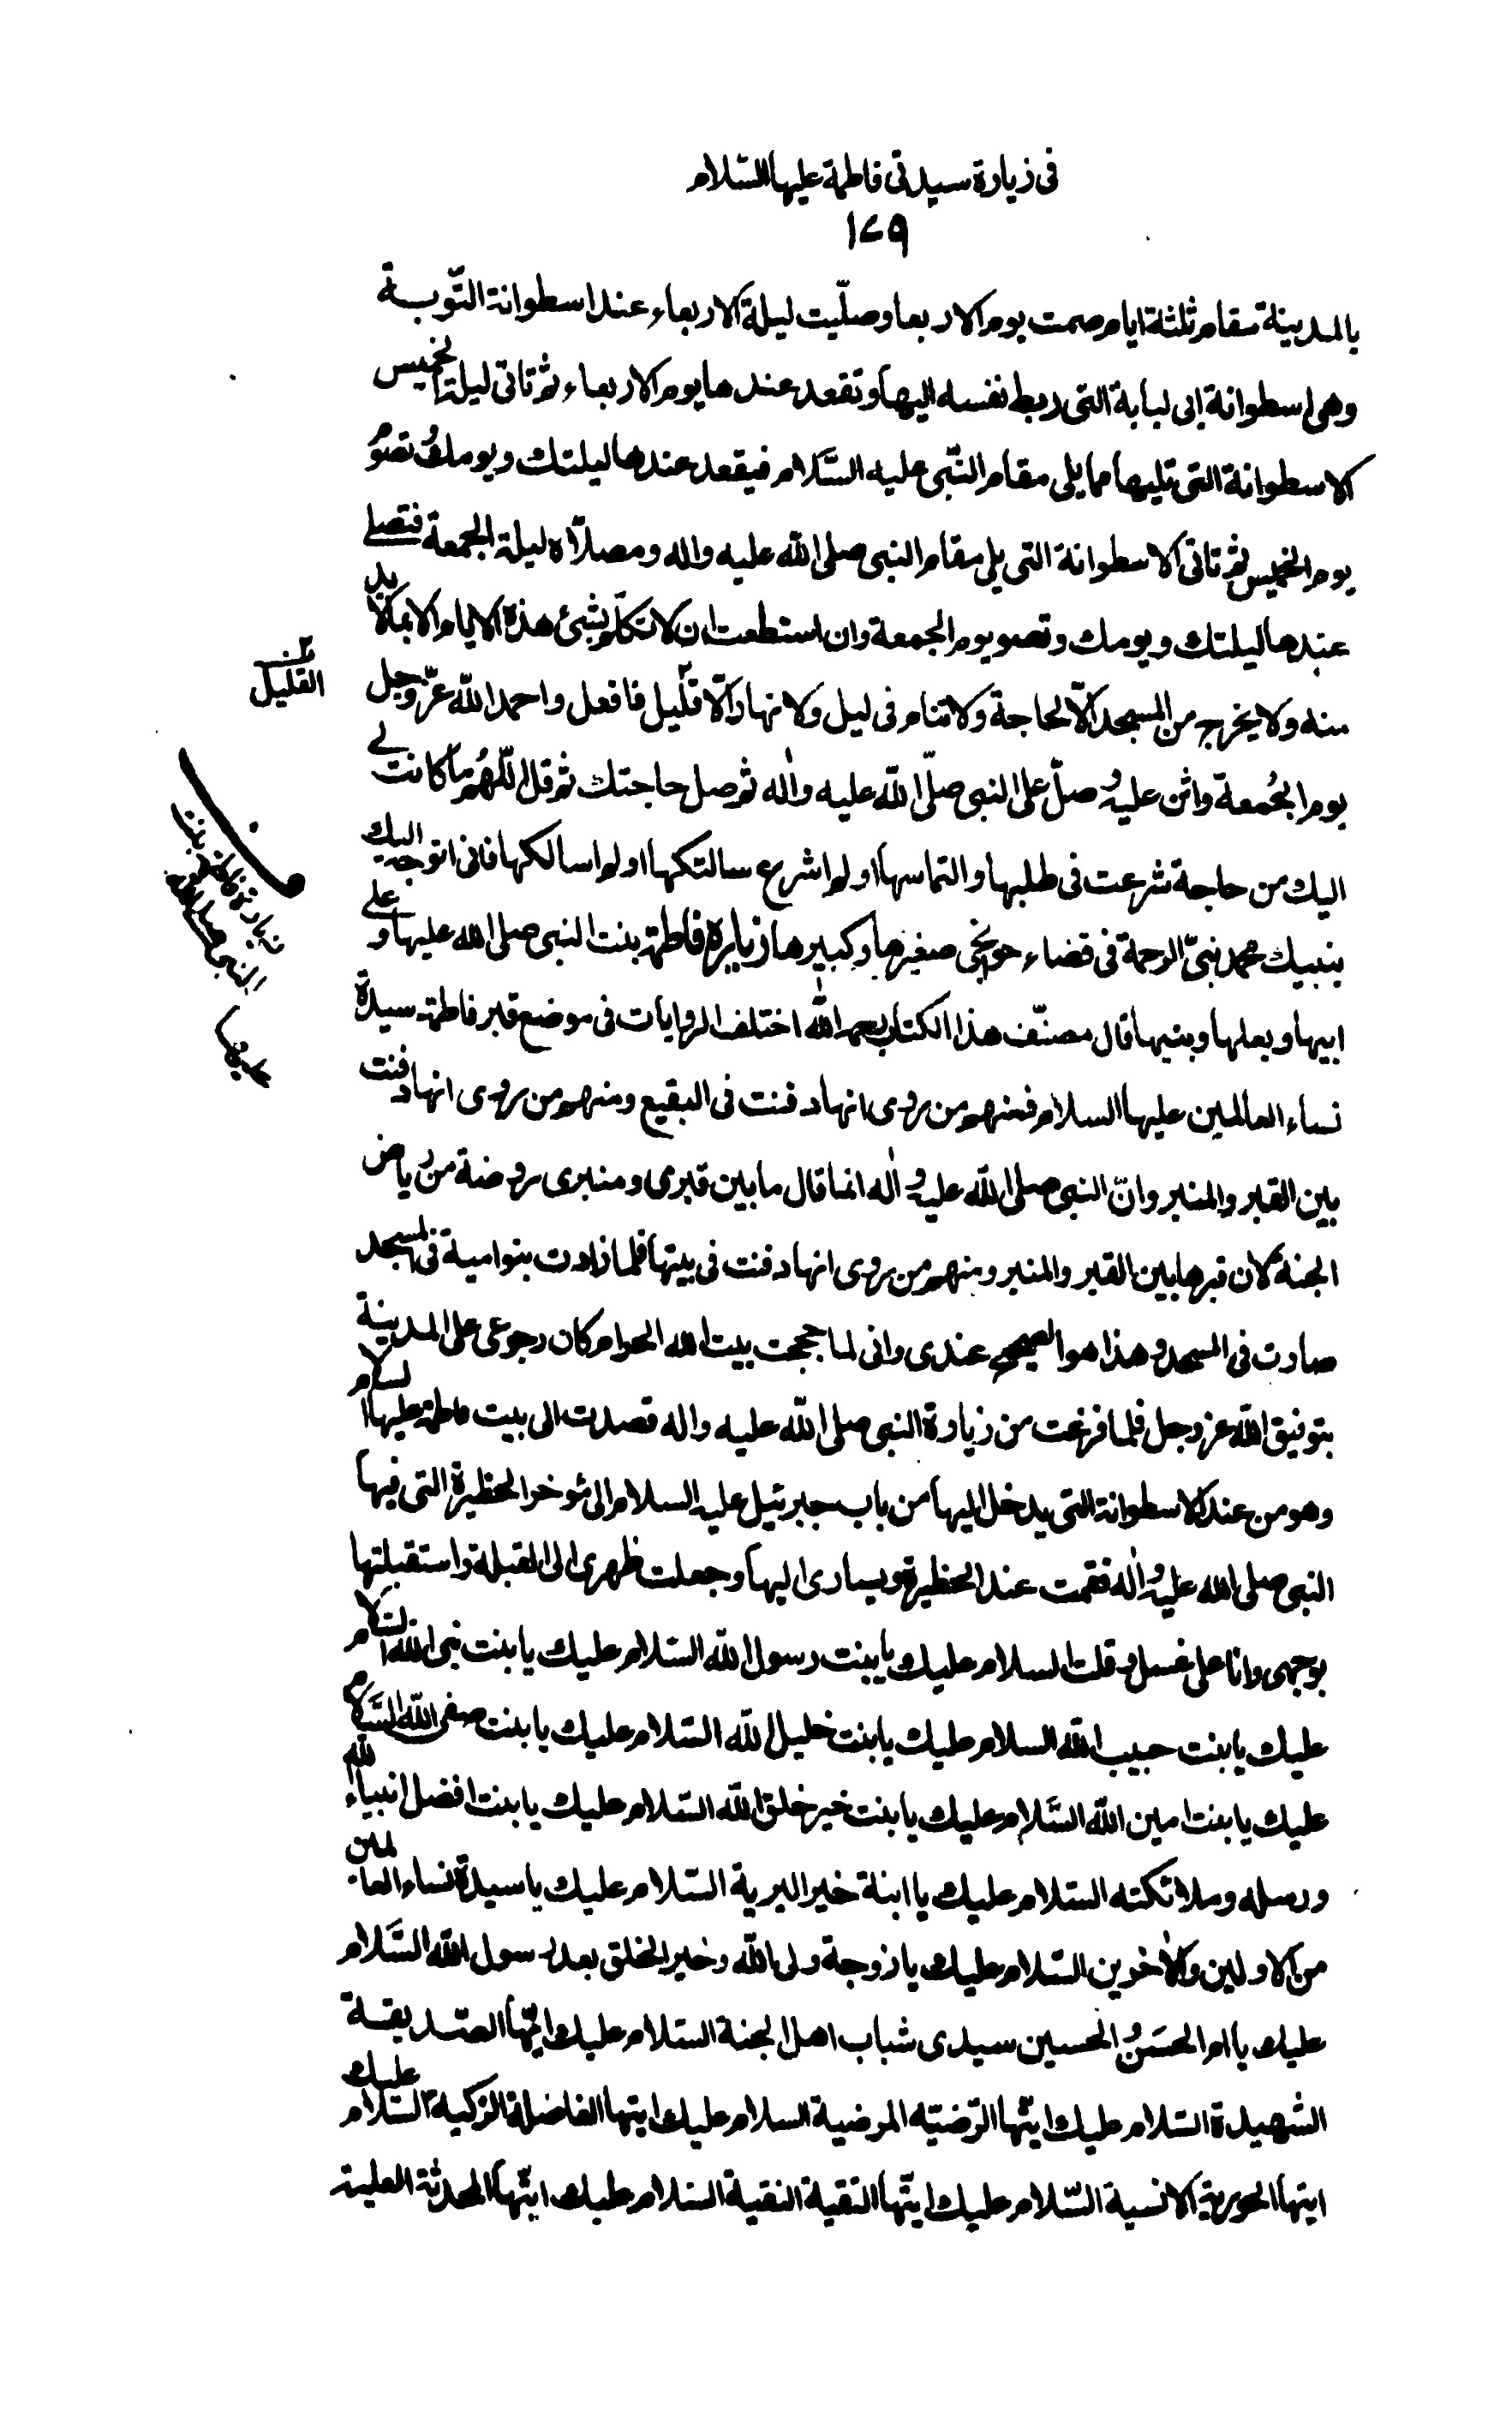 في زيارة سيدتى فاطمة عليها السّلام
١٧٩
بالمدينة مقام ثلثة ايام صمت يوم الاربعا وصلّيت ليلة الاربعاء عند اسطوانة التّوبة
وهى اسطوانة ابى لبابة التى ربط نفسه اليها وتقعد عندها يوم الاربعاء ثم تاتى ليلة الخميس
الاسطوانة التى تليها مما يلى مقام النّبى عليه السَّلام فيقعد عندها ليلتك ويومك وتصوم
يوم الخميس ثم تاتى الاسطوانة التى يلى مقام النبى صلى اللّه عليه واله ومصلاّه ليلة الجمعة فتصلى
عندها ليلتك ويومك وتصو يوم الجمعة وان استطعت ان لا تكلّم بشئ هذه الايام الا بما لا بد
منه ولا يخرج من المسجد الاّ لحاجة ولا تنام فى ليل ولا نهار الّا قليل فافعل واحمد اللّه عزّ وجل
القليل
يوم الجُمعة واثن عليه وصلّ على النبى صلّى اللّه عليه واله ثم صل حاجتك ثم قل اللّهمُ ما كانت لى
اليك من حاجة شرعت فى طلبها والتماسها او لم اشرع سالتكها او لم اسالكها فانى اتوجه اليك
بنبيك محمد نبىّ الرحمة فى قضاء حوائجى صغيرها وكبيرها زيارة فاطمة بنت النبى صلى الله عليها وعلى
ابيها وبعلها وبنيها قال مصنّف هذا الكتاب رحمه اللّه اختلف الروايات فى موضع قبر فاطمة سيدة
نساء العالمين عليها السلام فمنهم من روى انها دفنت فى البقيع ومنهم من روى انها دفنت
بين القبر والمنبر وانّ النبى صلى اللّه عليه واله انما قال ما بين قبرى ومنبرى روضة من رياض
الجنة لان قبرها بين القبر والمنبر ومنهم من روى انها دفنت فى بيتها فلما زادت بنو امية فى المسجد
صارت فى المسجد وهذا هو الصحيح عندى وانى لما حججت بيت الله الحرام كان رجوعى على المدينة
بتوفيق اللّه عز وجل فلما فرغت من زيارة النبى صلى اللّه عليه واله قصدت الى بيت فاطمة عليها السلام
وهو من عند الاسطوانة التى يدخل اليها من باب جبرئيل عليه السلام الى مؤخر الحظيرة التى فيها
النبى صلى الله عليه واله فقمت عند الحظيرة ويسارى اليها وجعلت ظهرى الى القبلة واستقبلتها
بوجهى وانا على غسل وقلت السلام عليك يا بنت رسول اللّه السّلام عليك يا بنت نبى اللّه السّلام
عليك يا بنت حبيب اللّه السلام عليك يا بنت خليل اللّه السّلام عليك يا بنت صفى اللّه السَّلام
عليك يا بنت امين اللّه السَّلام عليك يا بنت خير خلق اللّه السّلام عليك يا بنت افضل انبياء اللّه
ورسله وملائكته السّلام عليك يا ابنة خير البرية السّلام عليك يا سيدة نساء العالمين
من الاولين والاخرين السّلام عليك يا زوجة ولى اللّه وخير الخلق بعد رسول اللّه السَّلام
عليك يا ام الحسَن والحسين سيدى شباب اهل الجنة السّلام عليك ايتّها الصّديقة
الشهيدة السّلام عليك ايتّها الرّضيّه المرضية السلام عليك ايتها الفاضلة الزكية السّلام عليك
ايتها الحورية الانسية السّلام عليك ايتّها التقية النقية السّلام عليك ايتّها المحدثة العليمة